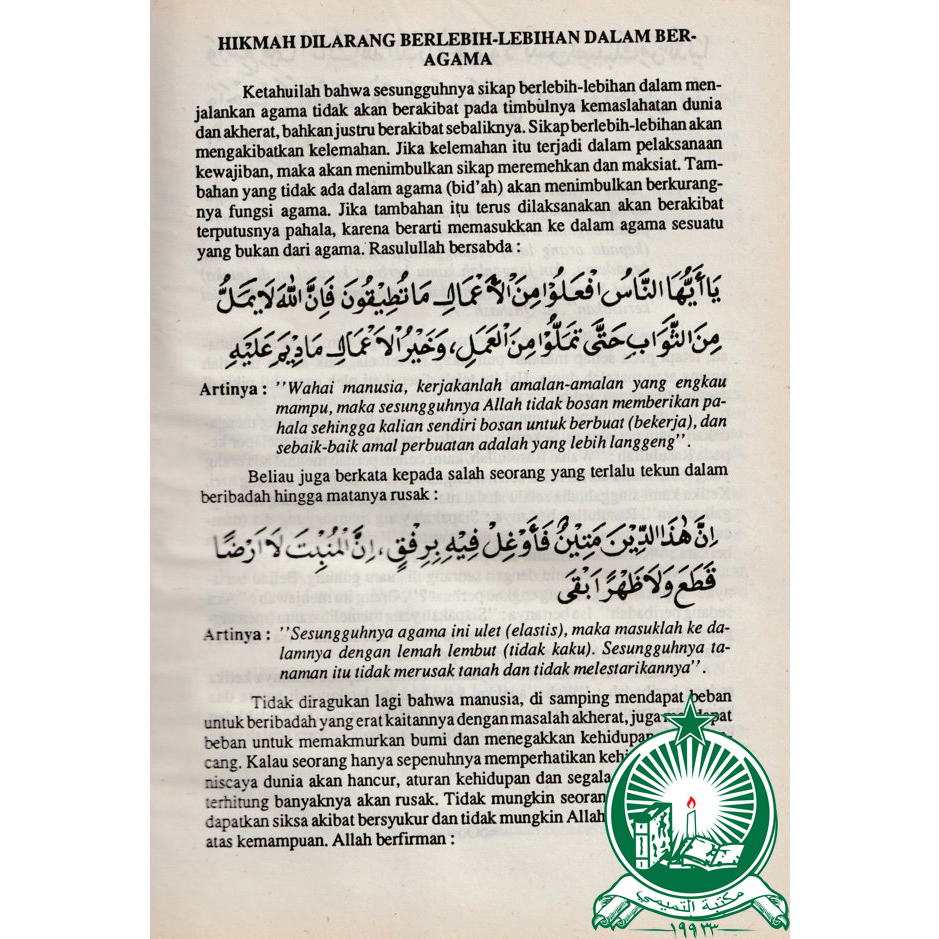 HIKMAH DILARANG BERLEBIH-LEBIHAN DALAM BER-
AGAMA
Ketahuilah bahwa sesungguhnya sikap berlebih-lebihan dalam men-
jalankan agama tidak akan berakibat pada timbulnya kemaslahatan dunia
dan akherat, bahkan justru berakibat sebaliknya. Sikap berlebih-lebihan akan
mengakibatkan kelemahan. Jika kelemahan itu terjadi dalam pelaksanaan
kewajiban, maka akan menimbulkan sikap meremehkan dan maksiat. Tam-
bahan yang tidak ada dalam agama (bid'ah) akan menimbulkan berkurang-
nya fungsi agama. Jika tambahan itu terus dilaksanakan akan berakibat
terputusnya pahala, karena berarti memasukkan ke dalam agama sesuatu
yang bukan dari agama. Rasulullah bersabda :
يَا أَيُّهَا النَّاسُ افْعَلُوْا مِنَ الْأَعْمَالِ مَا تُطِيْقُونَ فَإِنَّ اللهَ لَا يَمَلُّ
مِنَ الثَّوَابِ حَتَّى تَمَلُّوْا مِنَ الْعَمَلِ، وَخَيْرُ الْاَعْمَالِ مَا دِيْمَ عَلَيْهِ
Artinya : "Wahai manusia, kerjakanlah amalan-amalan yang engkau
mampu, maka sesungguhnya Allah tidak bosan memberikan pa-
hala sehingga kalian sendiri bosan untuk berbuat (bekerja), dan
sebaik-baik amal perbuatan adalah yang lebih langgeng".
Beliau juga berkata kepada salah seorang yang terlalu tekun dalam
beribadah hingga matanya rusak :
اِنَّ هٰذَا الدِّيْنَ مَتِيْنٌ فَأَوْغِلْ فِيْهِ بِرِفْقٍ، اِنَّ الْمُنْبِتَ لَا اَرْضًا
قَطَعَ وَلَا ظَهْرًا اَبْقَى
Artinya : "Sesungguhnya agama ini ulet (elastis), maka masuklah ke da-
lamnya dengan lemah lembut (tidak kaku). Sesungguhnya ta-
naman itu tidak merusak tanah dan tidak melestarikannya".
Tidak diragukan lagi bahwa manusia, di samping mendapat beban
untuk beribadah yang erat kaitannya dengan masalah akherat, juga
beban untuk memakmurkan bumi dan menegakkan kehidupan
cang. Kalau seorang hanya sepenuhnya memperhatikan
niscaya dunia akan hancur, aturan kehidupan dan segala
terhitung banyaknya akan rusak. Tidak mungkin
dapatkan siksa akibat bersyukur dan tidak mungkin Allah
atas kemampuan. Allah berfirman :
مكتبة التميمي
١٩٩٣٣